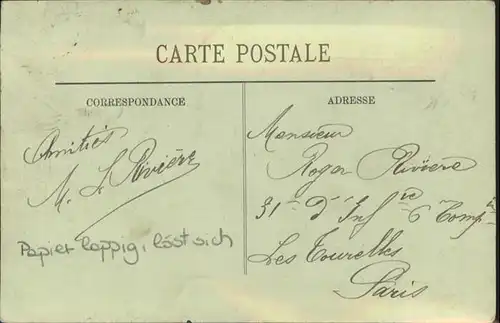 CARTE POSTALE
CORRESPONDANCE
Amitiés
M. L. Rivière
Papier lappig, löst sich
ADRESSE
Monsieur
Roger Rivière
31e d'Infie 6 Compie
Les Tourelles
Paris